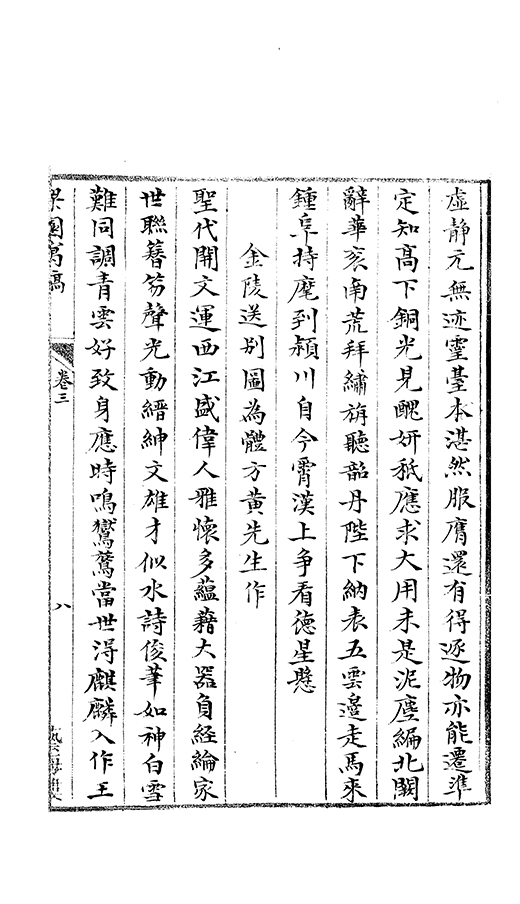 虛静元無迹靈臺本湛然服膺還有得逐物亦能遷準
定知高下銅光見醜姸秪應求大用未是泥塵編北闕
辭華亥南荒拜繡旃聽韶丹陛下納表五雲邊走馬來
鍾阜持麾到潁川自今霄漢上争看德星懸
金陵送别圖為體方黄先生作
聖代開文運西江盛偉人雅懷多蘊藉大器自經綸家
世聯簪笏聲光動縉紳文雄才似水詩俊筆如神白雪
難同調青雲好致身應時鳴鸑鷟當世得麒麟入作王
卷三
八